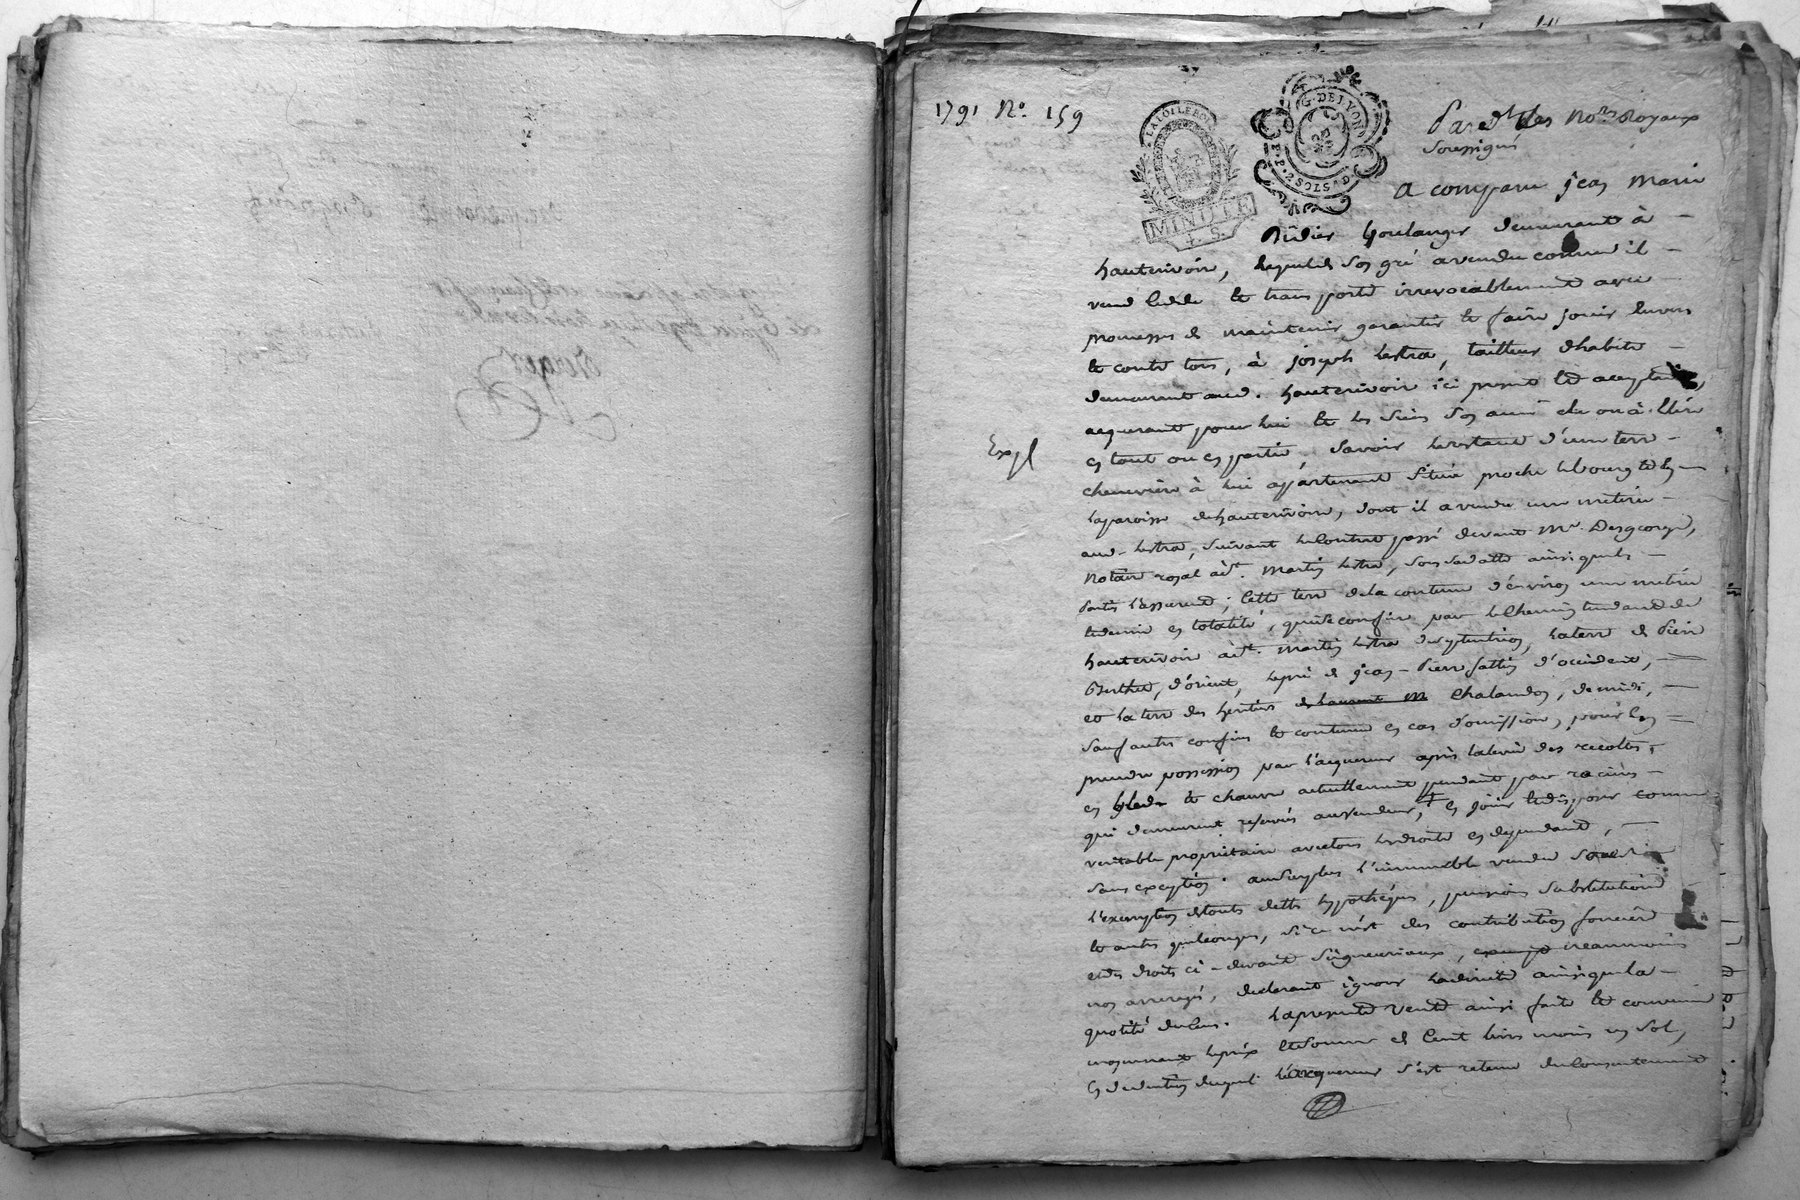 1791 No. 159
LA LOI LE ROI
G. DE LYON
2 SOLS 4 D.
MINUTE
Pardt les Nores Royaux
soussignés
A comparu jean Marie
Didier boulanger demeurant à
hauterivoire, lequel de son gré a vendu comme il
vend cede et transporte irrevocablement avec
promesses de maintenir garantir et faire jouir envers
et contre tous, à joseph Lestra, tailleur d'habits
demeurant aud. hauterivoire ici present et acceptant,
acquerant pour lui et les siens son ami elu ou à elire
Expl
en tout ou en partie, savoir le restant d'une terre
cheneviere à lui appartenant située proche le bourg et en
la paroisse de hauterivoire, dont il a vendu une metérée
aud. Lestra, suivant le contrat passé devant Mr. Desgorges,
Notaire royal à st. Martin Lestra, sous sa datte ainsi que les
parties l'assurent; cette terre de la contenue d'environ une metérée
et demie en totalité, qui se confine par le chemin tendant de
hauterivoire à st. Martin Lestra de septentrion, la terre de Pierre
Berthet, d'orient, le pré de jean-Pierre d'occident,
et la terre des heritiers de Laurent M Chalandon, de midi,
sauf autres confins et contenue en cas d'omission, pour en
prendre possession par l'acquereur après la levée des recoltes
en bled et chanvre actuellement pendant par racines
qui demeurent reservés au vendeur, + en jouir et disposer comme
veritable propriétaire avec tous les droits en dependant,
sans exception. au surplus l'immeuble vendu sous
l'exemption de toutes dettes hypothéques, pensions substitutions
et autres quelconques, si ce n'est des contributions foncières
et des droits ci-devant seigneuriaux, neanmoins
nos arreragés, declarant ignorer la directe ainsi que la
quotité du cens. La presente vente ainsi faite et convenue
moyennant le prix et somme de Cent livres moins un sol,
en deduction duquel l'acquereur s'est retenu du consentement